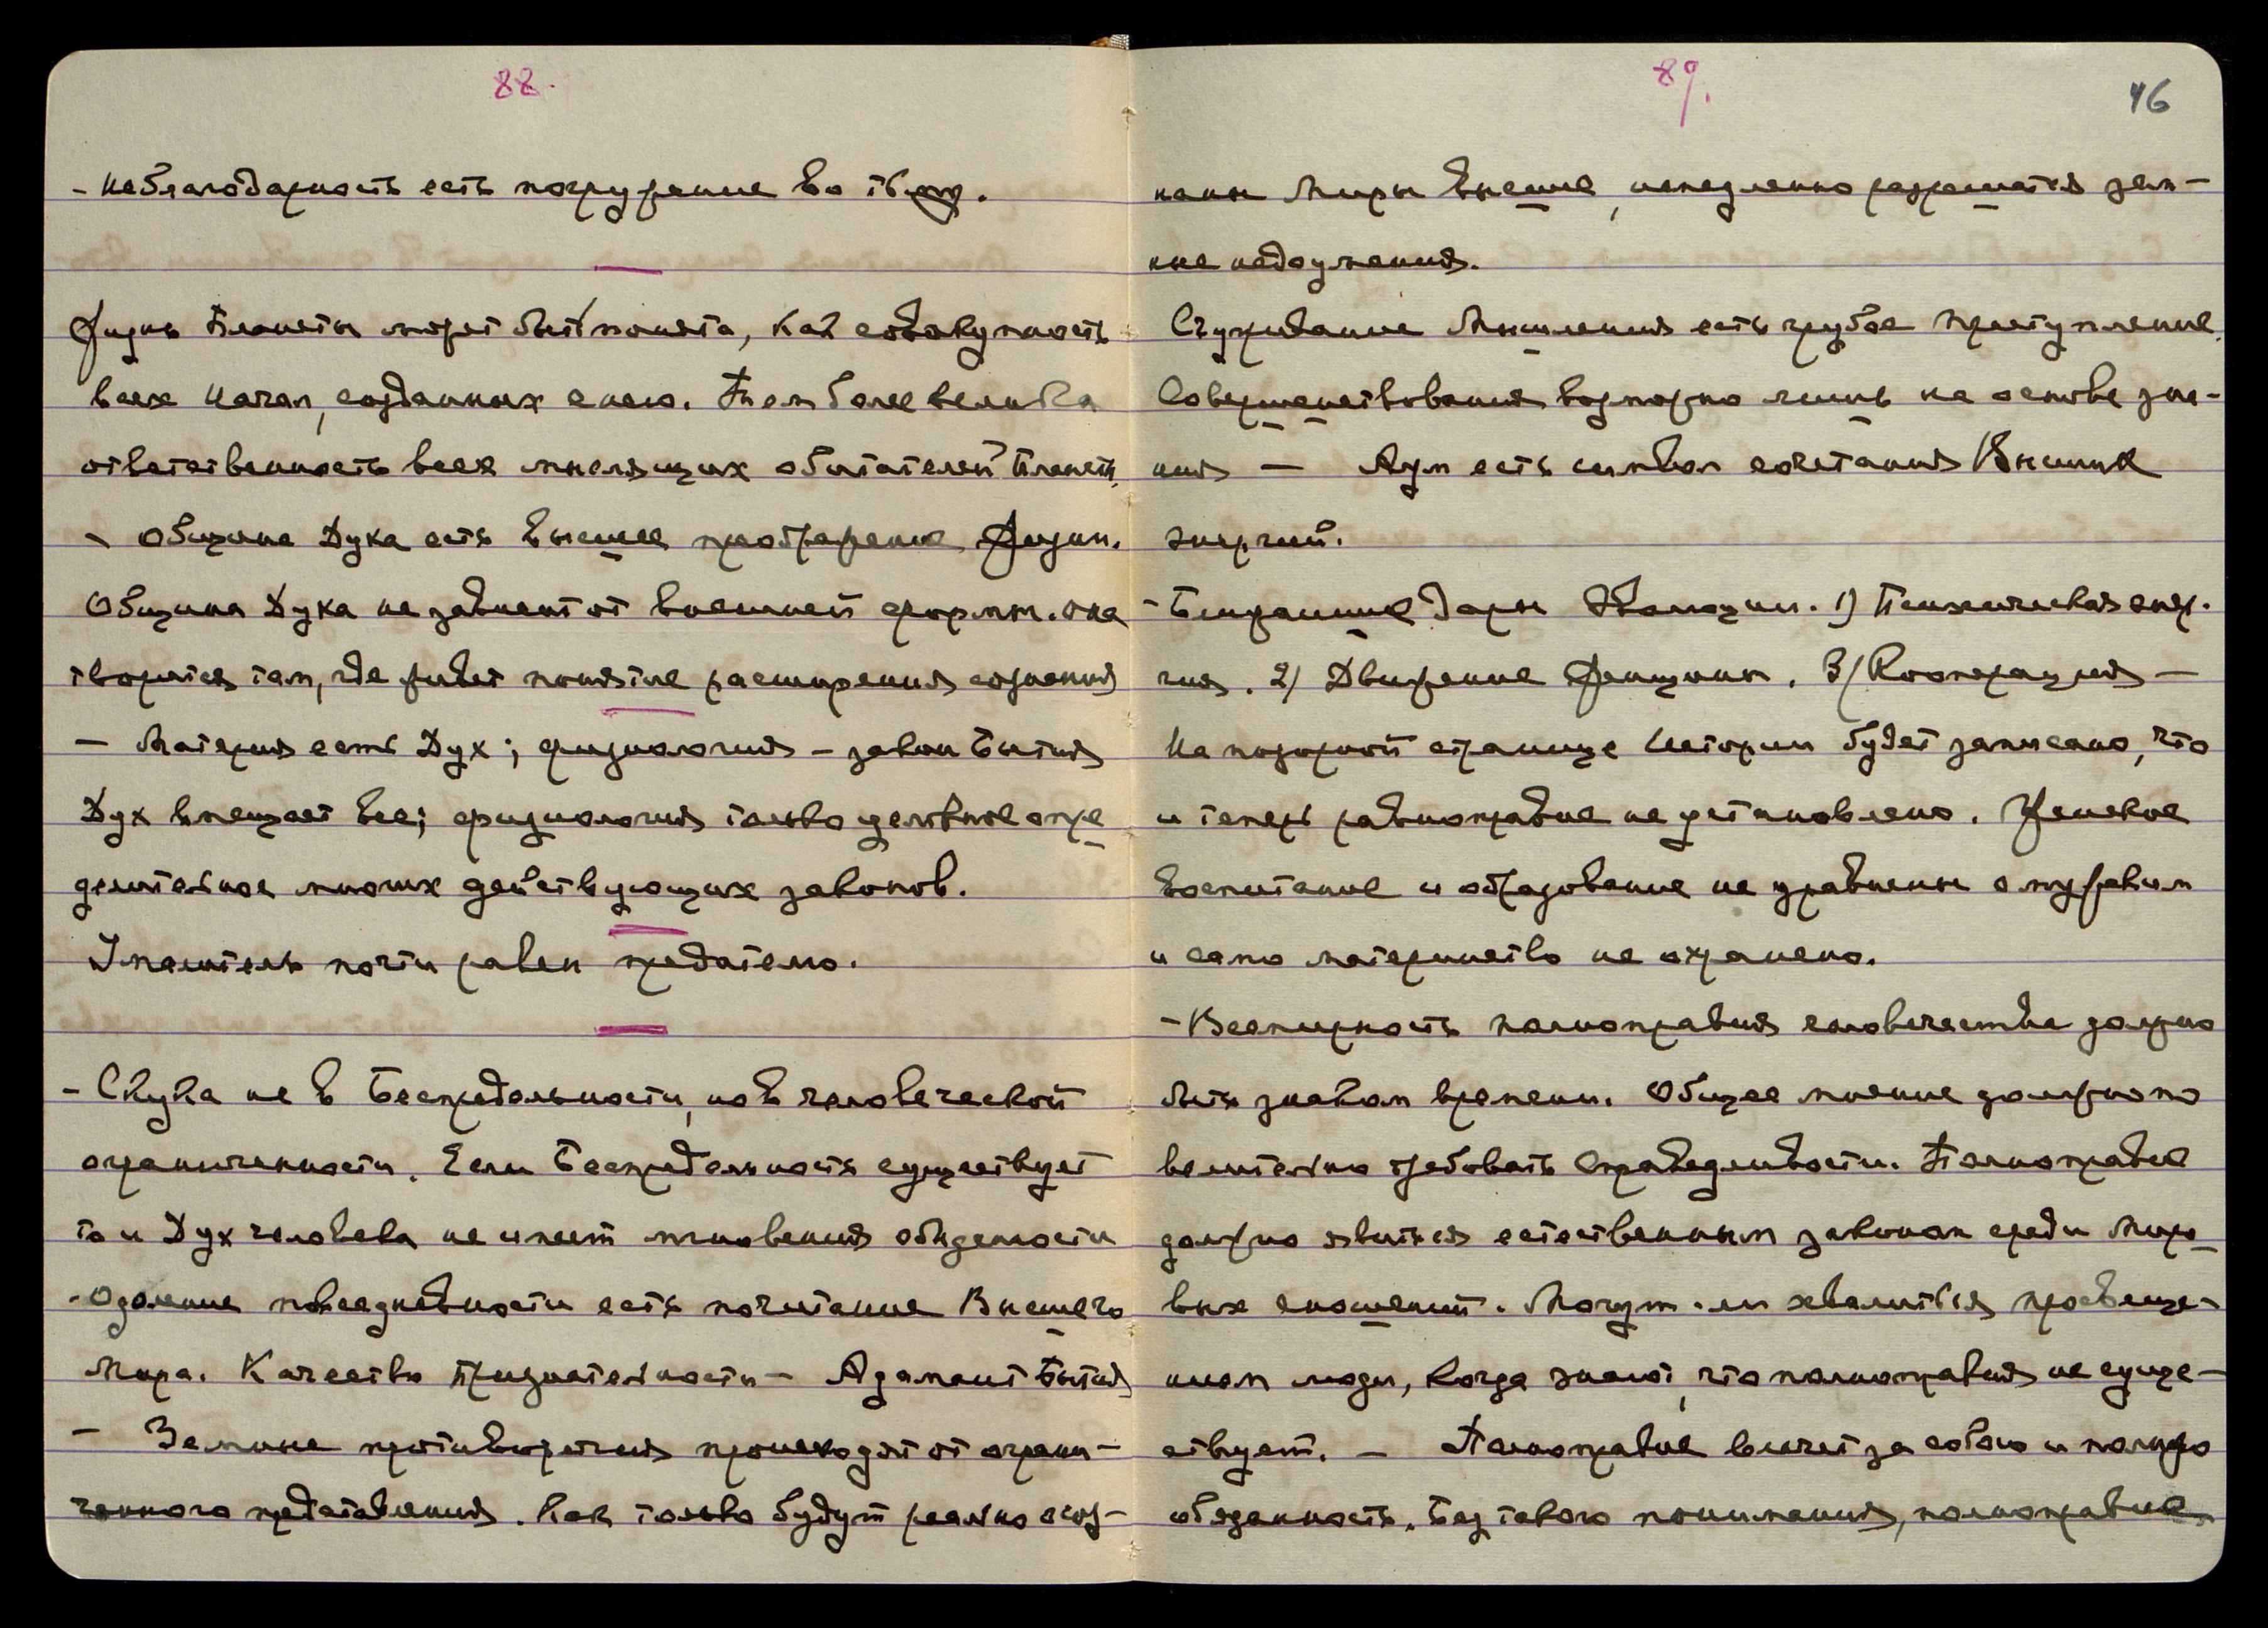 88.
- Неблагодарность есть погружение во тьму.
Жизнь Планеты может быть понята, как совокупность
всех начал, созданных еною. Тем более велика
ответственность всех мыслящих обитателей Планеты.
- Община Духа есть высшее преображение Жизни.
Община Духа не зависит от внешней формы. Она
творится там, где живет понятие расширения сознания
- Материя есть Дух; физиология - закон Бытия
Дух вмещает все; физиология только условное опре
делительное многих действующих законов.
Умалитель почти равен предателю.
- Скука не в Беспредельности, но в человеческой
ограниченности. Если Беспредельность существует
то и Дух человека не имеет мгновения обыденности
- Одоление повседневности есть почитание Высшего
Мира. Качество Признательности - Адамант Бытия
- Земные противоречия происходят от ограни-
ченного представления. Как только будут реально осоз-
89.
46
наны Миры Высшие, немедленно разрешатся зем-
ные недоумения.
Суживание Мышления есть грубое преступление.
Совершенствования возможно лишь на основе зна-
ния - Аум есть символ сочетания Высших
энергий.
- Ближайшие дары Эволюции. 1) Психическая энер.
гия. 2) Движение Женщины. 3) Кооперация -
На позорной странице Истории будет записано, что
и теперь равноправие не установлено. Женское
воспитание и образование не уравнены с мужским
и само материнство не охранено.
- Всемирность полноправия человечества должно
быть знаком времени. Общее мнение должно по
велительно требовать Справедливости. Полноправие
должно явиться естественным законом среди Миро
вых сношений. Могут-ли хвалиться просвеще-
нием люди, когда знают, что полноправия не суще-
ствует. - Полноправие влечет за собою и полную
обязанность. Без такого понимания, полноправие